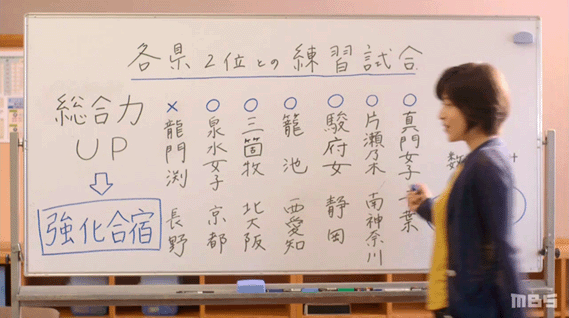 各県2位との練習試合
総合力
UP
強化合宿
× 龍門渕 長野
○ 泉水女子 京都
○ 三箇牧 北大阪
○ 籠池 西愛知
○ 駿府女 静岡
○ 片瀬乃木 南神奈川
○ 真門女子 千葉
数
+
mbs